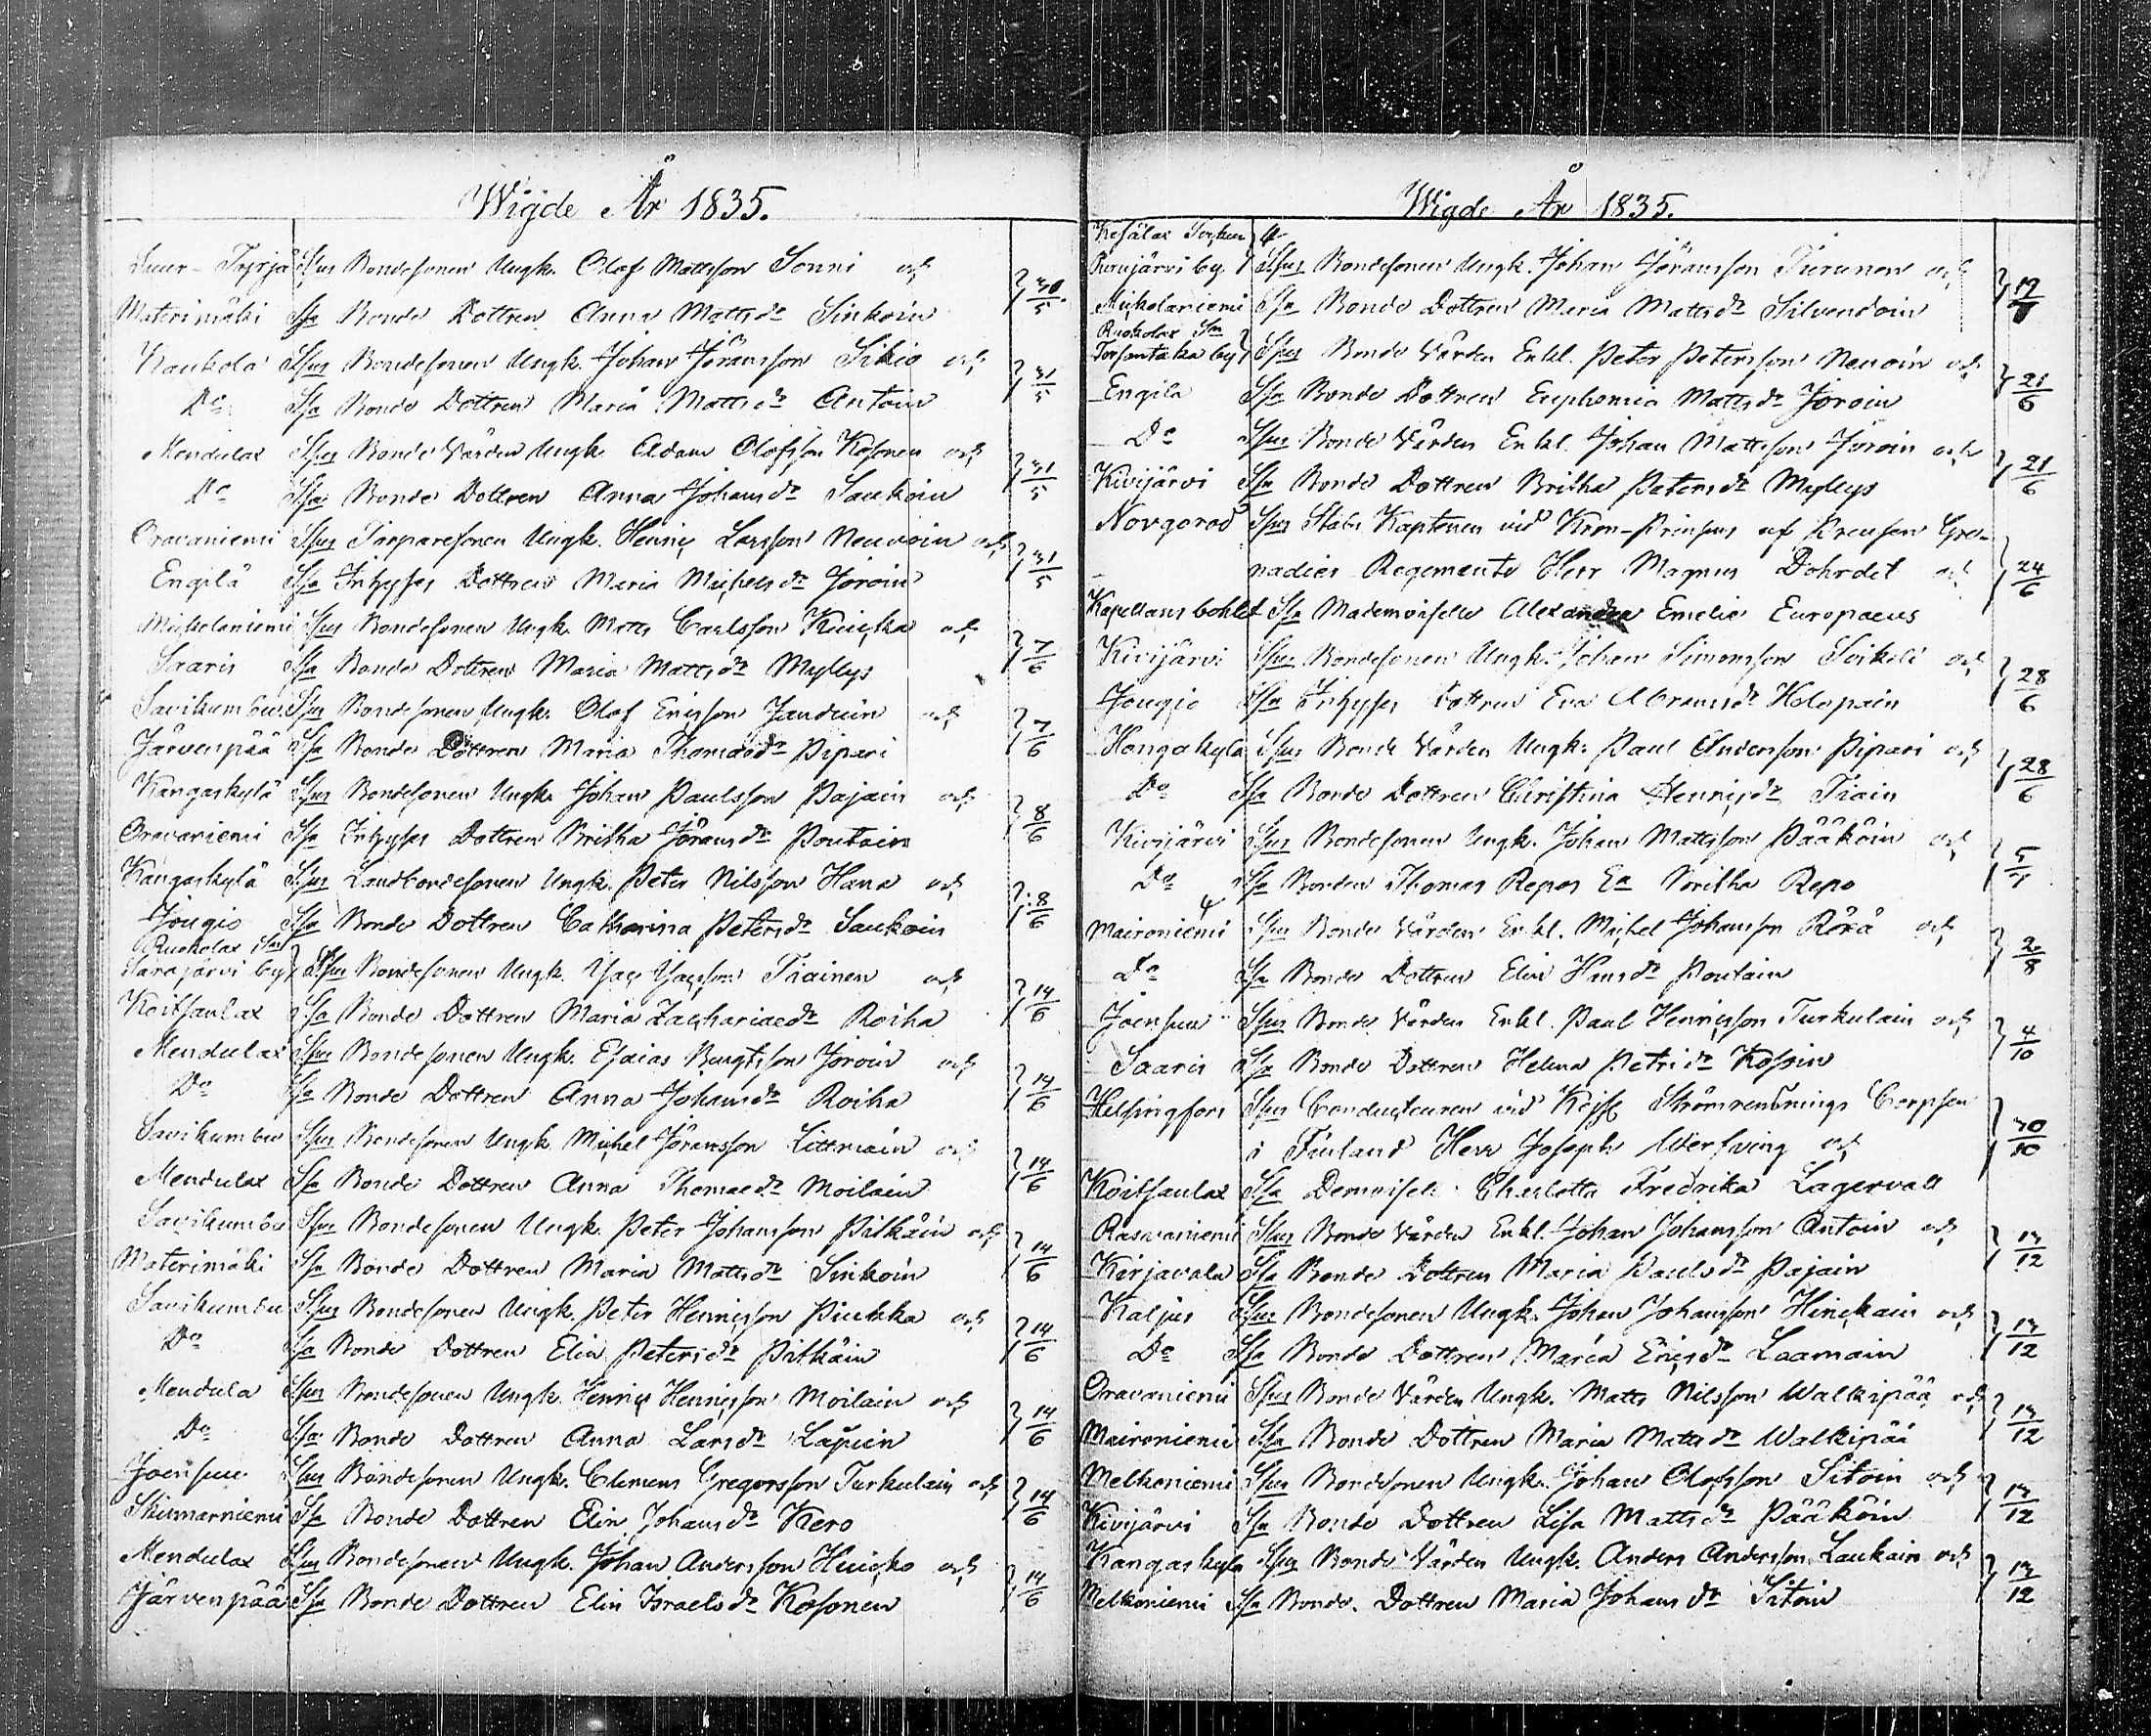 Wigde År 1835.
Suur-Torpa Spus Bondesonen Ungk. Olof Mattsson Sonni och } 30/5
Materimäki Spa Bonde Dottren Anna Mattsdr Sinkoin
Kaukola Spus Bondesonen Ungk. Johan Jöransson Sikiö och } 31/5
Do Spa Bonde Dottren Maria Mattsdr Antoin
Mendulax Spus Bonde Vården Ungk. Adam Olofsson Kosonen och } 31/5
Do Spa Bonde Dottren Anna Johansdr Saukoin
Oravaniemi Spus Torparesonen Ungk. Henric Larsson Neuvoin och } 31/5
Engilä Spa Inhyses Dottren Maria Michelsdr Jöroin
Mickelaniemi Spus Bondesonen Ungk. Matts Carlsson Kuicka och } 7/6
Saaris Spa Bonde Dottren Maria Mattsdr Myllys
Savikumbu Spus Bondesonen Ungk. Olof Ericsson Janduin och } 7/6
Järvenpää Spa Bonde Dottren Maria Thomaedr Pipari
Kangaskylä Spus Bondesonen Ungk. Johan Paulsson Pajain och } 8/6
Oravaniemi Spa Inhyses Dottren Britha Jöransdr Poutain
Kangaskylä Spus Landbondesonen Ungk. Peter Nilsson Hana och } 8/6
Jougio Spa Bonde Dottren Catharina Petersdr Saukoin
Ruokolax Sn
Särajärvi by } Spus Bondesonen Ungk. Isac Isacsson Tiainen och } 14/6
Koitsanlax Spa Bonde Dottren Maria Zachariaedr Roiha
Mendulax Spus Bondesonen Ungk. Esaias Bengtsson Jöroin och } 14/6
Do Spa Bonde Dottren Anna Johansdr Roiha
Savikumbu Spus Bondesonen Ungk. Michel Jöransson Littmain och } 14/6
Mendulax Spa Bonde Dottren Anna Thomaedr Moilain
Savikumbu Spus Bondesonen Ungk. Peter Johansson Pitkäin och } 14/6
Materimäki Spa Bonde Dottren Maria Mattsdr Sinkoin
Savikumbu Spus Bondesonen Ungk. Peter Henricsson Piukka och } 14/6
Do Spa Bonde Dottren Elin Petersdr Pitkäin
Mendula Spus Bondesonen Ungk. Henric Henricsson Moilain och } 14/6
Do Spa Bonde Dottren Anna Larsdr Lapuin
Joensuu Spus Bondesonen Ungk. Clemens Gregorsson Turkulain och } 14/6
Skinnarniemi Spa Bonde Dottren Elin Johansdr Kero
Mendulax Spus Bondesonen Ungk. Johan Andersson Huicko och } 14/6
Järvenpää Spa Bonde Dottren Elin Israelsdr Kosonen
Wigde År 1835.
Kesälax Socken
Purujärvi by } Spus Bondesonen Ungk. Johan Jöransson Turunen och } 17/
Mickelaniemi Spa Bonde Dottren Maria Mattsdr Silvendoin
Ruokolax Sn
Torsantaka by } Spus Bonde Vården Enkl. Peter Petersson Neuoin och } 21/6
Engilä Spa Bonde Dottren Euphemia Mattsdr Jöroin
Do Spus Bonde Vården Enkl. Johan Mattsson Jöroin och } 21/6
Kivijärvi Spa Bonde Dottren Britha Petersdr Myllys
Novgorod Spus Stabs Kaptenen vid Kron-Prinsens af Preusen Gre-
nadier Regemente Herr Magnus Dohrdet och } 24/6
Kapellans bohlet Spa Mademoiselle Alexandra Emelie Europaeus
Kivijärvi Spus Bondesonen Ungk. Johan Simonsson Soikeli och } 28/6
Jougio Spa Inhyses Dottren Eva Abramsdr Holopain
Kangaskylä Spus Bonde Vården Ungk. Paul Andersson Pipari och } 28/6
Do Spa Bonde Dottren Christina Henricsdr Tiain
Kivijärvi Spus Bondesonen Ungk. Johan Mattsson Pääköin och } 5/7
Do Spa Bonden Thomas Repos Ea Britha Repo
Maironiemi Spus Bonde Vården Enkl. Michel Johansson Rörä och } 2/8
Do Spa Bonde Dottren Elin Hansdr Poutain
Joensuu Spus Bonde Vården Enkl. Paul Henricsson Turkulain och } 4/10
Saaris Spa Bonde Dottren Helena Petridr Kossin
Helsingfors Spus Conducteuren vid Kejsl Strömrensnings Corpsen
i Finland Herr Joseph Werfving och } 30/10
Koitsanlax Spa Demoisell Charlotta Fredrika Lagervall
Rasvaniemi Spus Bonde Vården Enkl. Johan Johansson Antoin och } 13/12
Kirjavala Spa Bonde Dottren Maria Paulsdr Pajain
Kaljus Spus Bondesonen Ungk. Johan Johansson Hinckain och } 13/12
Do Spa Bonde Dottren Maria Ericsdr Laamain
Oravaniemi Spus Bonde Vården Ungk. Matts Nilsson Walkipää och } 13/12
Maironiemi Spa Bonde Dottren Maria Mattsdr Walkipää
Melkoniemi Spus Bondesonen Ungk. Johan Olofsson Sitoin och } 13/12
Kivijärvi Spa Bonde Dottren Lisa Mattsdr Pääköin
Kangaskylä Spus Bonde Vården Ungk. Anders Andersson Laukain och } 13/12
Melkoniemi Spa Bonde Dottren Maria Johansdr Sitoin